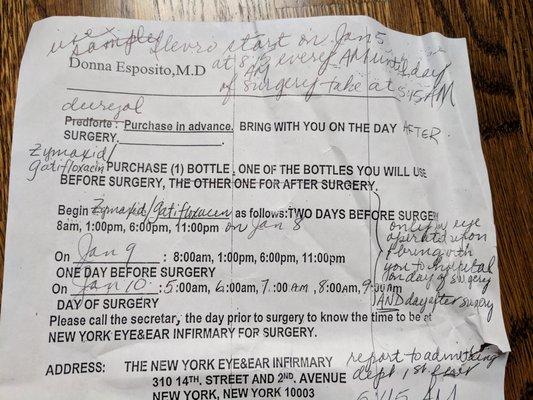 use sample Ilevro start on Jan 5
at 8:15 every AM until day
Donna Esposito,M.D
of surgery take at 5:15 AM
durezol
Predforte : Purchase in advance. BRING WITH YOU ON THE DAY AFTER.
SURGERY.
Zymaxid/
gatifloxacin PURCHASE (1) BOTTLE, ONE OF THE BOTTLES YOU WILL USE
BEFORE SURGERY, THE OTHER ONE FOR AFTER SURGERY.
Begin Zymaxid/gatifloxacin as follows:TWO DAYS BEFORE SURGERY
8am, 1:00pm, 6:00pm, 11:00pm on Jan 8
only in eye
operated upon
bring with
you to hospital
on day of surgery
AND day after surgery
On Jan 9 : 8:00am, 1:00pm, 6:00pm, 11:00pm
ONE DAY BEFORE SURGERY
On Jan 10 : 5:00am, 6:00am, 7:00 AM, 8:00AM, 9:00AM
DAY OF SURGERY
Please call the secretar, the day prior to surgery to know the time to be at
NEW YORK EYE&EAR INFIRMARY FOR SURGERY.
ADDRESS: THE NEW YORK EYE&EAR INFIRMARY
310 14TH, STREET AND 2ND. AVENUE
NEW YORK, NEW YORK 10003
report to admitting
dept 1st floor
AM